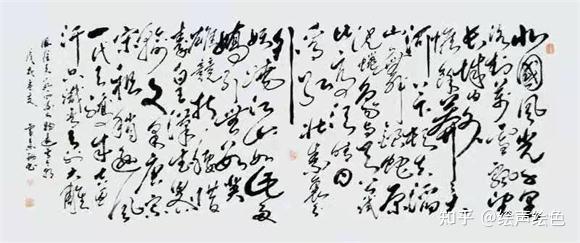 北國風光千里
冰封萬里雪飄望
長城內外
惟餘莽莽大
河上下頓失滔
山舞銀蛇原
馳蠟象欲與天公試
比高須晴日
看紅裝素裹
分外
妖嬈江山如此多
嬌引無數英
雄競折腰惜
秦皇漢武
輸文采唐宗
宋祖稍遜風
一代天驕成吉思
汗只識彎弓射大雕
知乎 @绘声绘色